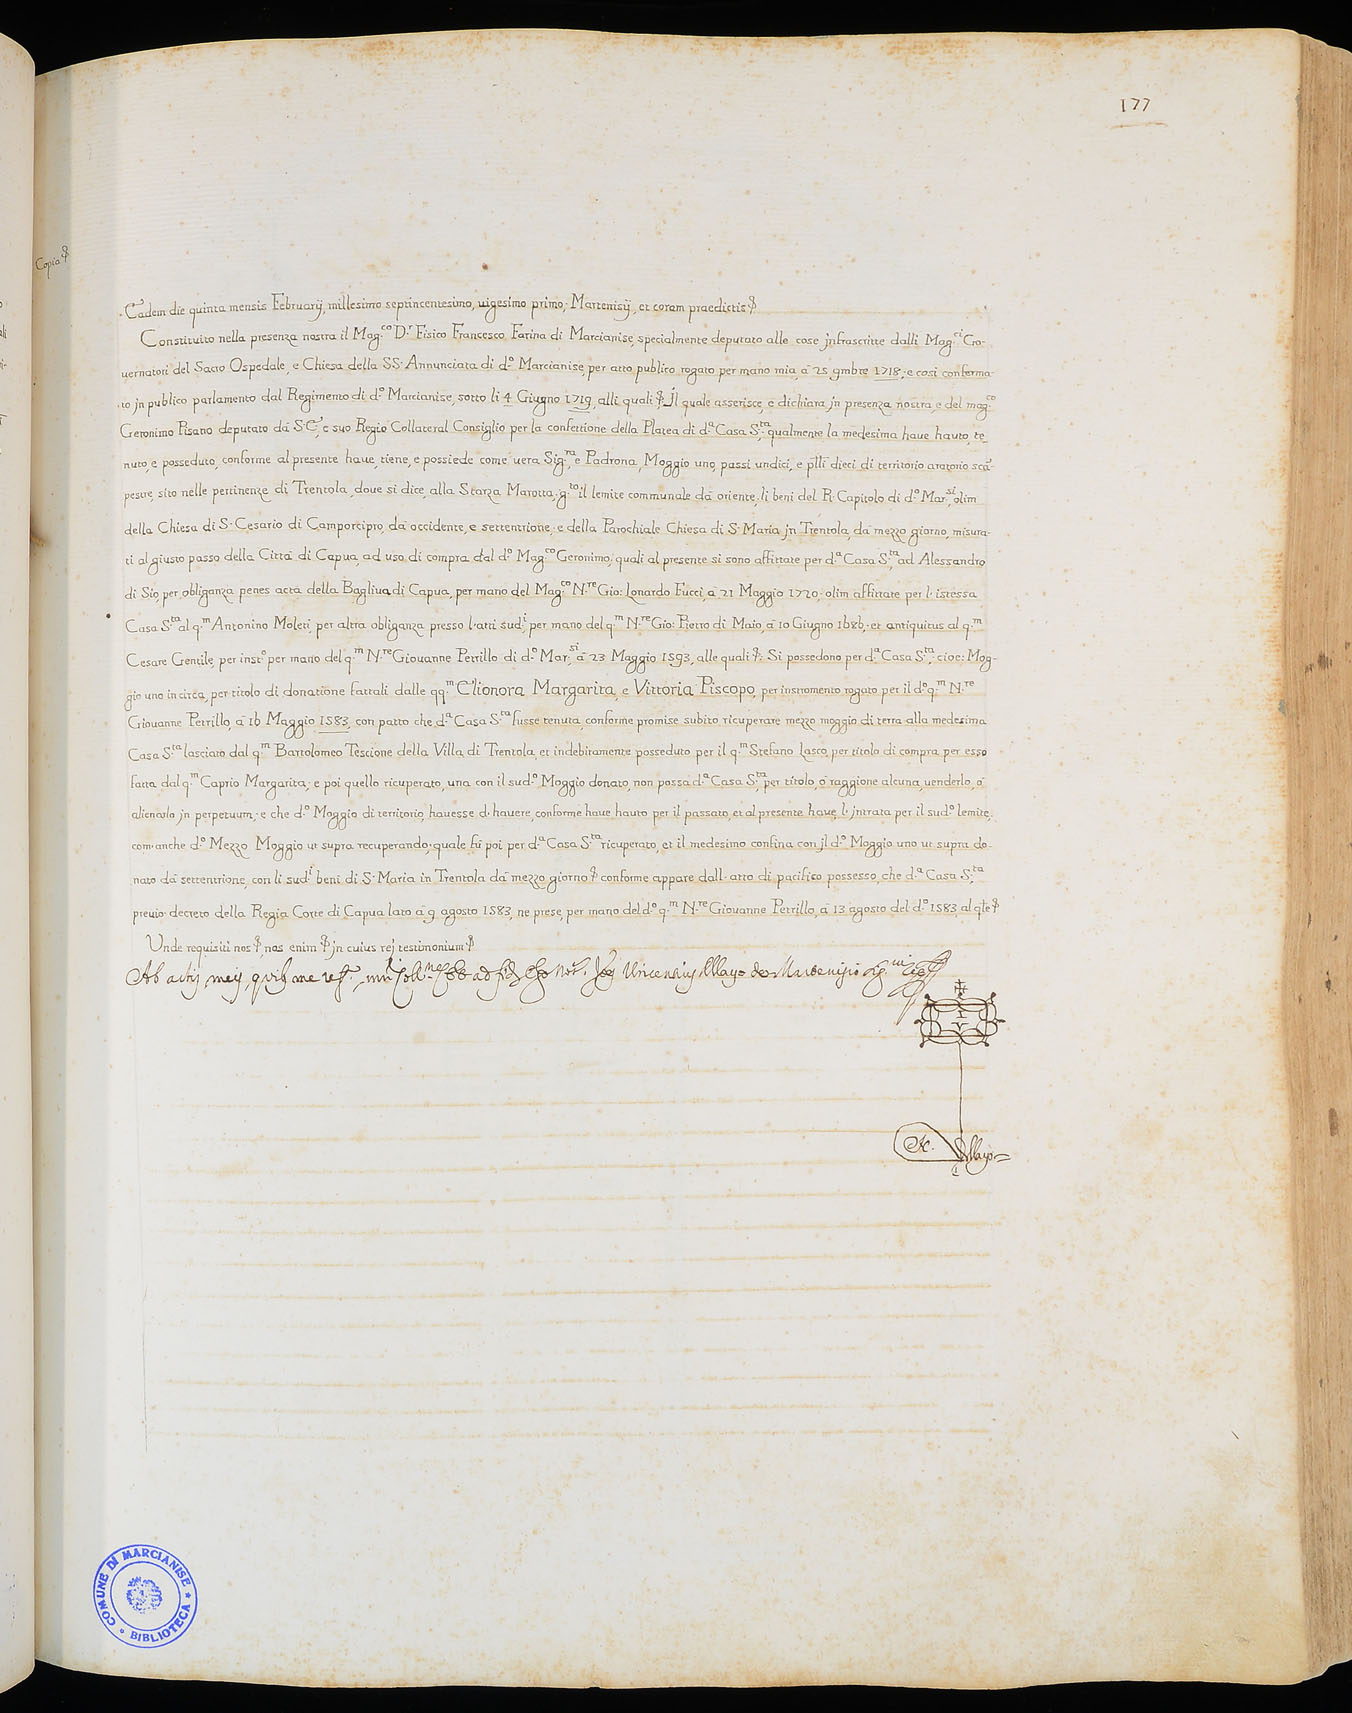 177
Copia
Eadem die quinta mensis Februarij, millesimo septincentesimo, uigesimo primo; Martenisij, et coram praedictis &
Constituito nella presenza nostra il Mag.co D.r Fisico Francesco Farina di Marcianise, specialmente deputato alle cose jnfrascritte dalli Mag.ci Go-
uernatori del Sacro Ospedale, e Chiesa della SS. Annunciata di d.o Marcianise, per atto publico rogato per mano mia, à 25 9mbre 1718; e così conferma-
to jn publico parlamento dal Regimento di d.o Marcianise, sotto li 4 Giugno 1719, alli quali & Il quale asserisce, e dichiara jn presenza nostra, e del mag.co
Geronimo Pisano deputato dà S. E., e suo Regio Collateral Consiglio per la confettione della Platea di d.a Casa S.ta, qualmente la medesima haue hauto, te-
nuto, e posseduto, conforme al presente haue, tiene, e possiede come uera Sig.ra e Padrona, Moggio uno, passi undici, e p̃lli dieci di territorio aratorio scā-
pestre, sito nelle pertinenze di Trentola, doue si dice, alla Starza Marotta, g.to il lemite communale dà oriente, li beni del R. Capitolo di d.o Mar.si, olim
della Chiesa di S. Cesario di Camporcipro, dà occidente, e settentrione, e della Parochiale Chiesa di S. Maria jn Trentola, dà mezzo giorno, misura-
ti al giusto passo della Città di Capua, ad uso di compra dal d.o Mag.co Geronimo, quali al presente si sono affittate per d.a Casa S.ta, ad Alessandro
di Sio, per obliganza penes acta della Bagliua di Capua, per mano del Mag.co N.re Gio: Lonardo Fucci, à 21 Maggio 1720. olim affittate per l'istessa
Casa S.ta al q.m Antonino Moleti, per altra obliganza presso l'atti sud.i, per mano del q.m N.re Gio: Pietro di Maio, à 10 Giugno 1686, et antiquitus al q.m
Cesare Gentile, per inst.o per mano del q.m N.re Giouanne Petrillo di d.o Mar.si à 23 Maggio 1593, alle quali &. Si possedono per d.a Casa S.ta, cioe: Mog-
gio uno in circa, per titolo di donatione fattali dalle qq.m Elionora Margarita, e Vittoria Piscopo, per instromento rogato per il d.o q.m N.re
Giouanne Petrillo, à 16 Maggio 1583, con patto che d.a Casa S.ta fusse tenuta, conforme promise subito ricuperare mezzo moggio di terra alla medesima
Casa S.ta lasciato dal q.m Bartolomeo Tescione della Villa di Trentola, et indebitamente posseduto per il q.m Stefano Lasco, per titolo di compra per esso
fatta dal q.m Caprio Margarita; e poi quello ricuperato, una con il sud.o Moggio donato, non possa d.a Casa S.ta per titolo, ò raggione alcuna, uenderlo, ò
alienarlo jn perpetuum, e che d.o Moggio di territorio, hauesse d'hauere, conforme haue hauto per il passato, et al presente haue, l'jntrata per il sud.o lemite,
com'anche d.o Mezzo Moggio ut supra recuperando, quale fù poi per d.a Casa S.ta ricuperato, et il medesimo confina con jl d.o Moggio uno ut supra do-
nato dà settentrione, con li sud.i beni di S. Maria in Trentola dà mezzo giorno & conforme appare dall'atto di pacifico possesso, che d.a Casa S.ta
preuio decreto della Regia Corte di Capua lato à 9 agosto 1583, ne prese, per mano del d.o q.m N.re Giouanne Petrillo, à 13 agosto del d.o 1583, al q̃le &
Unde requisiti nos &, nos enim & jn cuius rej testimonium &
Ab actis meis, quib. me Vincentius Mayo de Marcenisio
COMUNE DI MARCIANISE
BIBLIOTECA